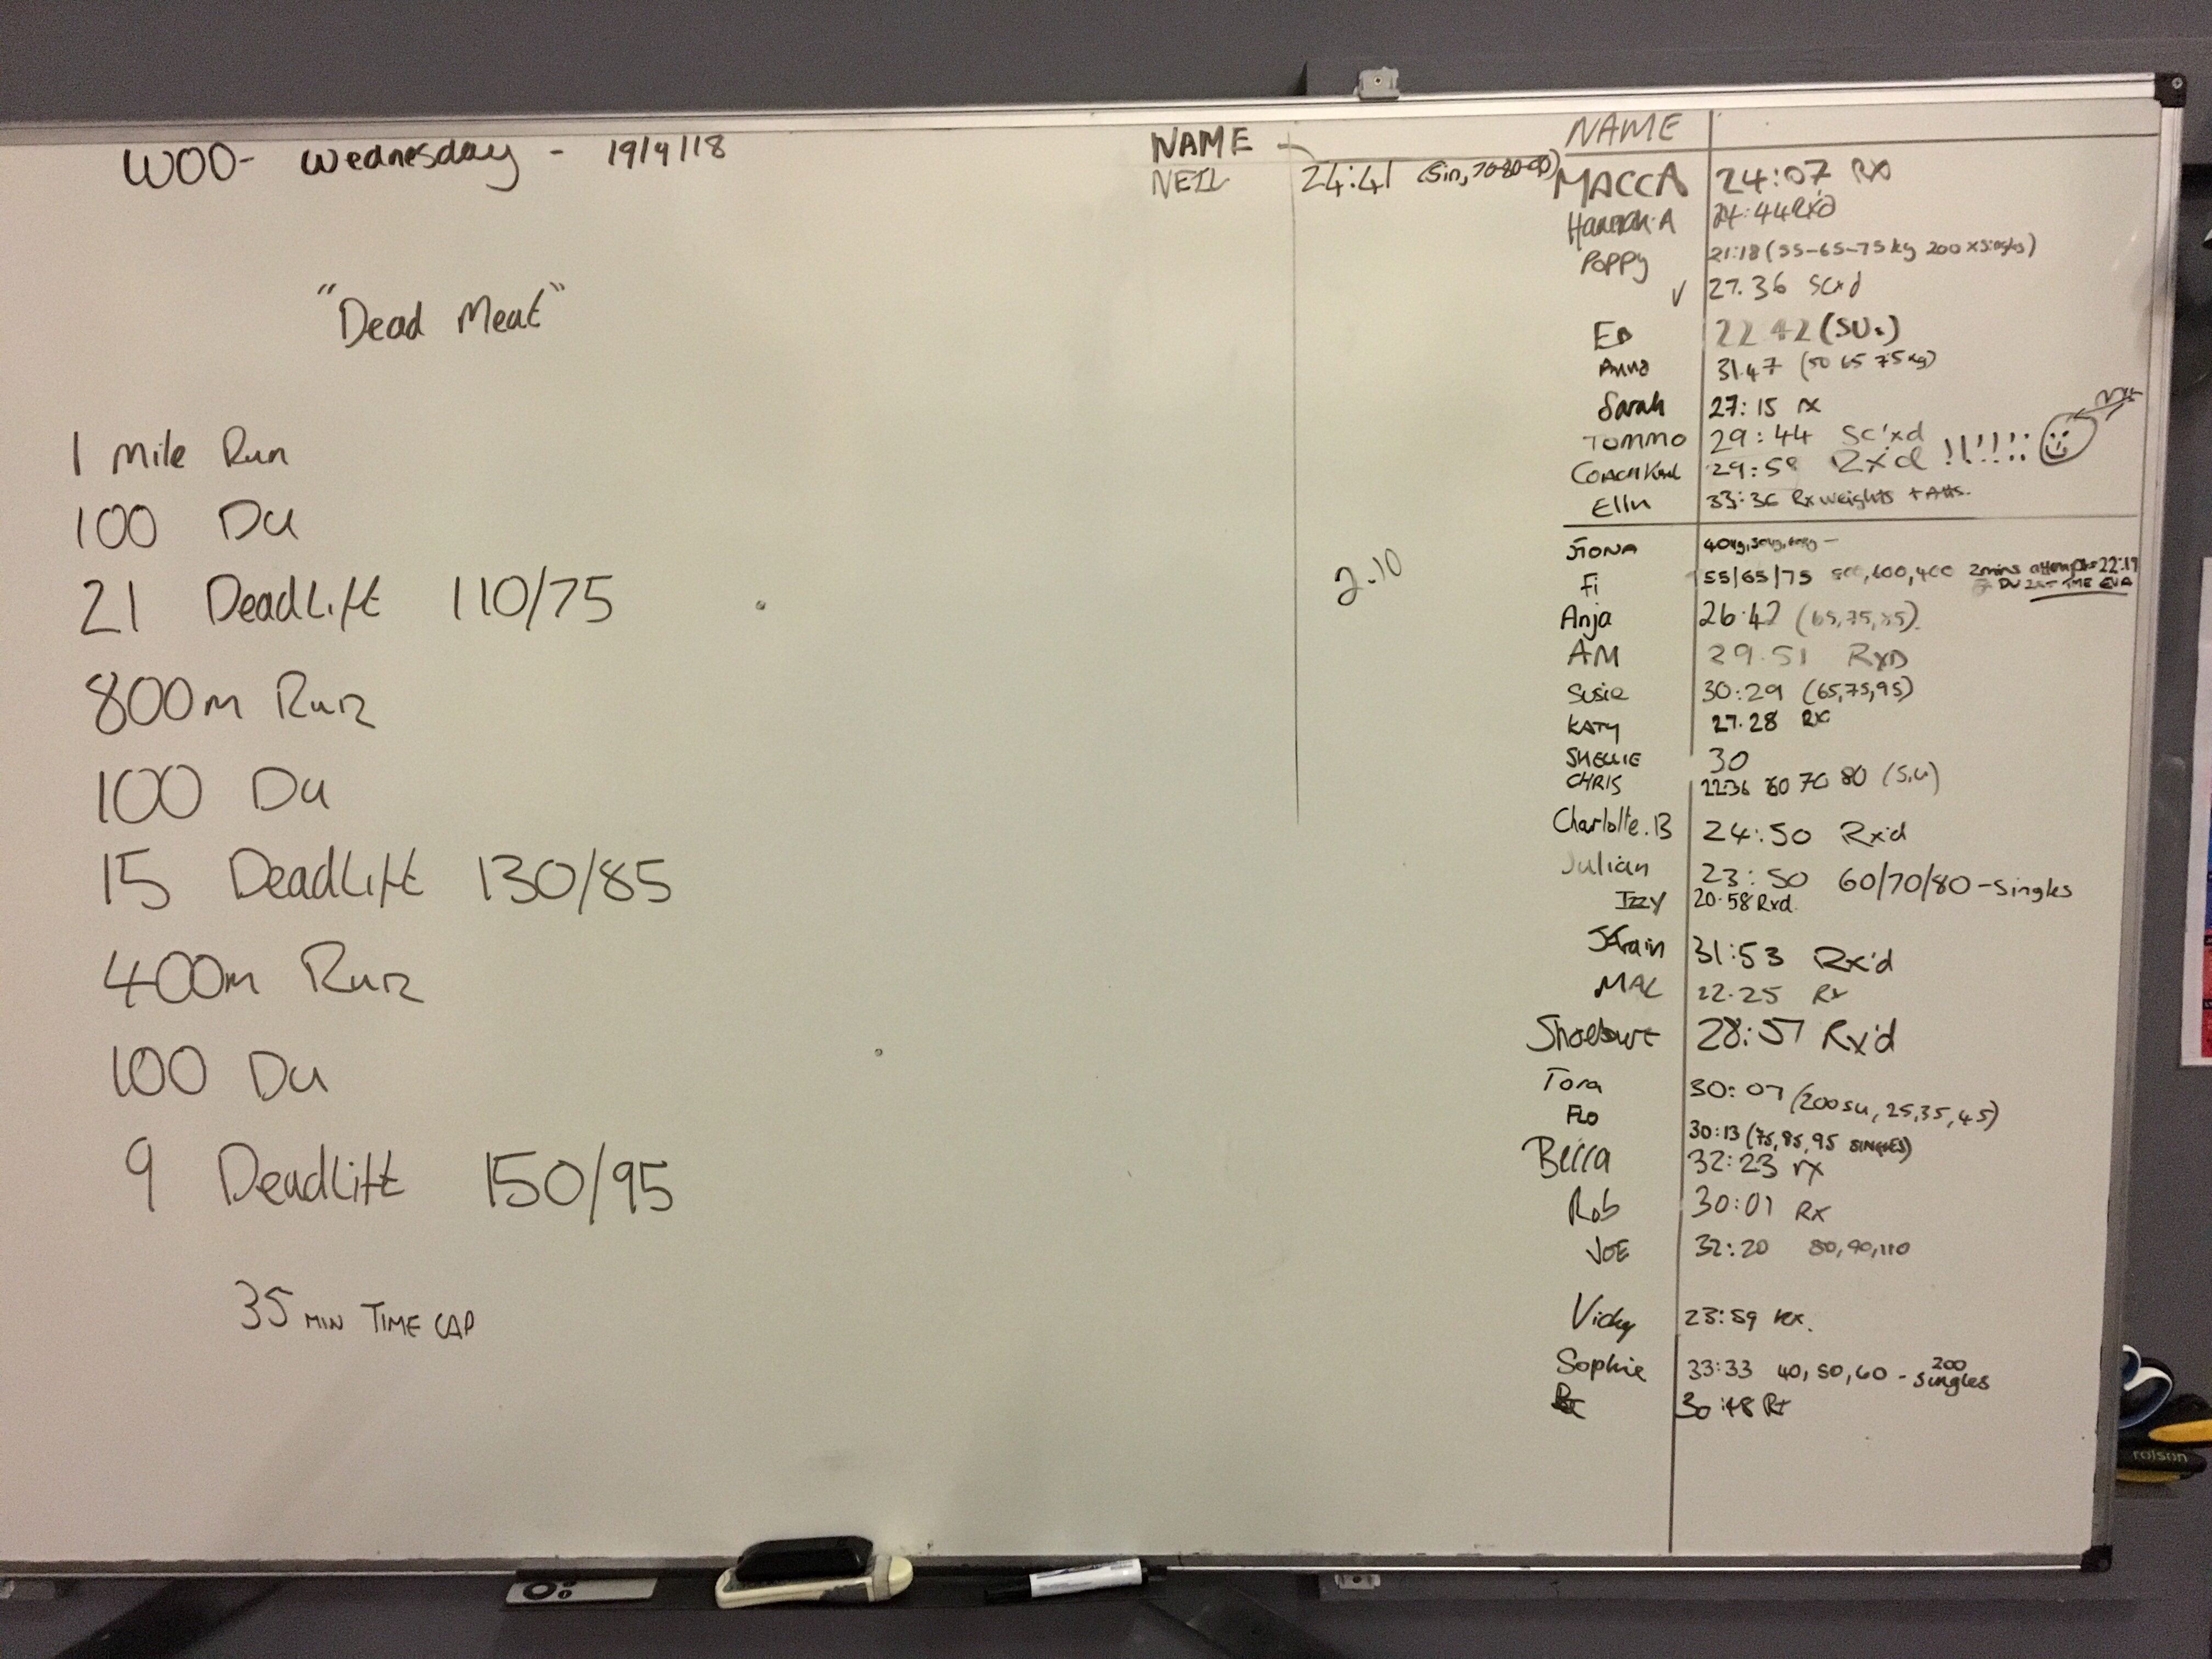 WOD- Wednesday - 19/9/18
"Dead Meat"
1 Mile Run
100 Du
21 DeadLift 110/75
800m Run
100 Du
15 DeadLift 130/85
400m Run
100 Du
9 DeadLift 150/95
35 MIN TIME CAP
NAME
NEIL 24:41 (Sin, 70-80-90)
2.10
NAME
MACCA 24:07 RX
Hannah.A 24:44 Rx'd
Poppy 21:18 (55-65-75kg 200 x singles)
V 27.36 Scxd
ED 22 42 (SU.)
Anna 31.47 (50 65 75kg)
Sarah 27:15 rx
TOMMO 29:44 Sc'xd
COACH Karl 29:58 Rx'd !!!!!
33:36 Rx weights + Atts.
FIONA 40kg, 50kg, 60kg -
Fi 55/65/75 600, 400 2mins attempts 22:19
DU
Anja 26:42 (65,75,85).
AM 29.51 RxD
Susie 30:29 (65,75,95)
KATY 27.28 RX
SHELLIE 30
CHRIS 22:36 60 70 80 (S.U)
Charlotte.B 24:50 Rx'd
Julian 23:50 60/70/80 - Singles
Izzy 20.58 Rxd.
31:53 Rx'd
MAC 22.25 Rx
28:51 Rx'd
Tora 30:07 (200 SU, 25,35,45)
FLO 30:13 (75,85,95 SINGLES)
Becca 32:23 rx
Rob 30:01 Rx
JOE 32:20 80,90,110
Vicky 23:59 Rx.
Sophie 33:33 40,50,60 - 200 singles
30:48 Rx
rolson